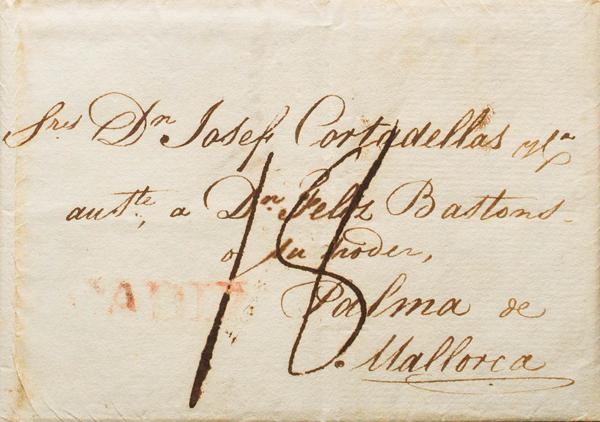 Sres Dn Josef Cortadellas y Ca
auste, a Dn Feliz Bastons
o su poder,
CADIZ
Palma de
Mallorca
18